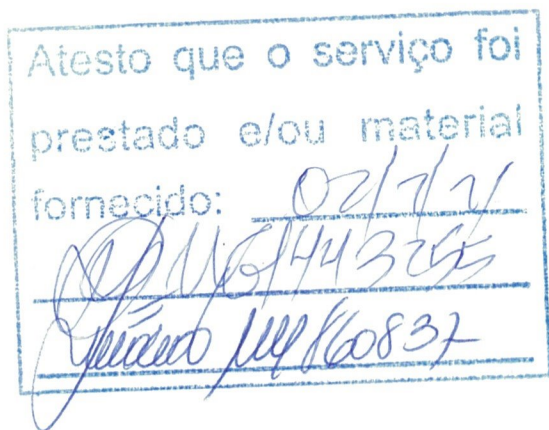 Atesto que o serviço foi
prestado e/ou material
fornecido: 02/7/21
MG1443255
860837